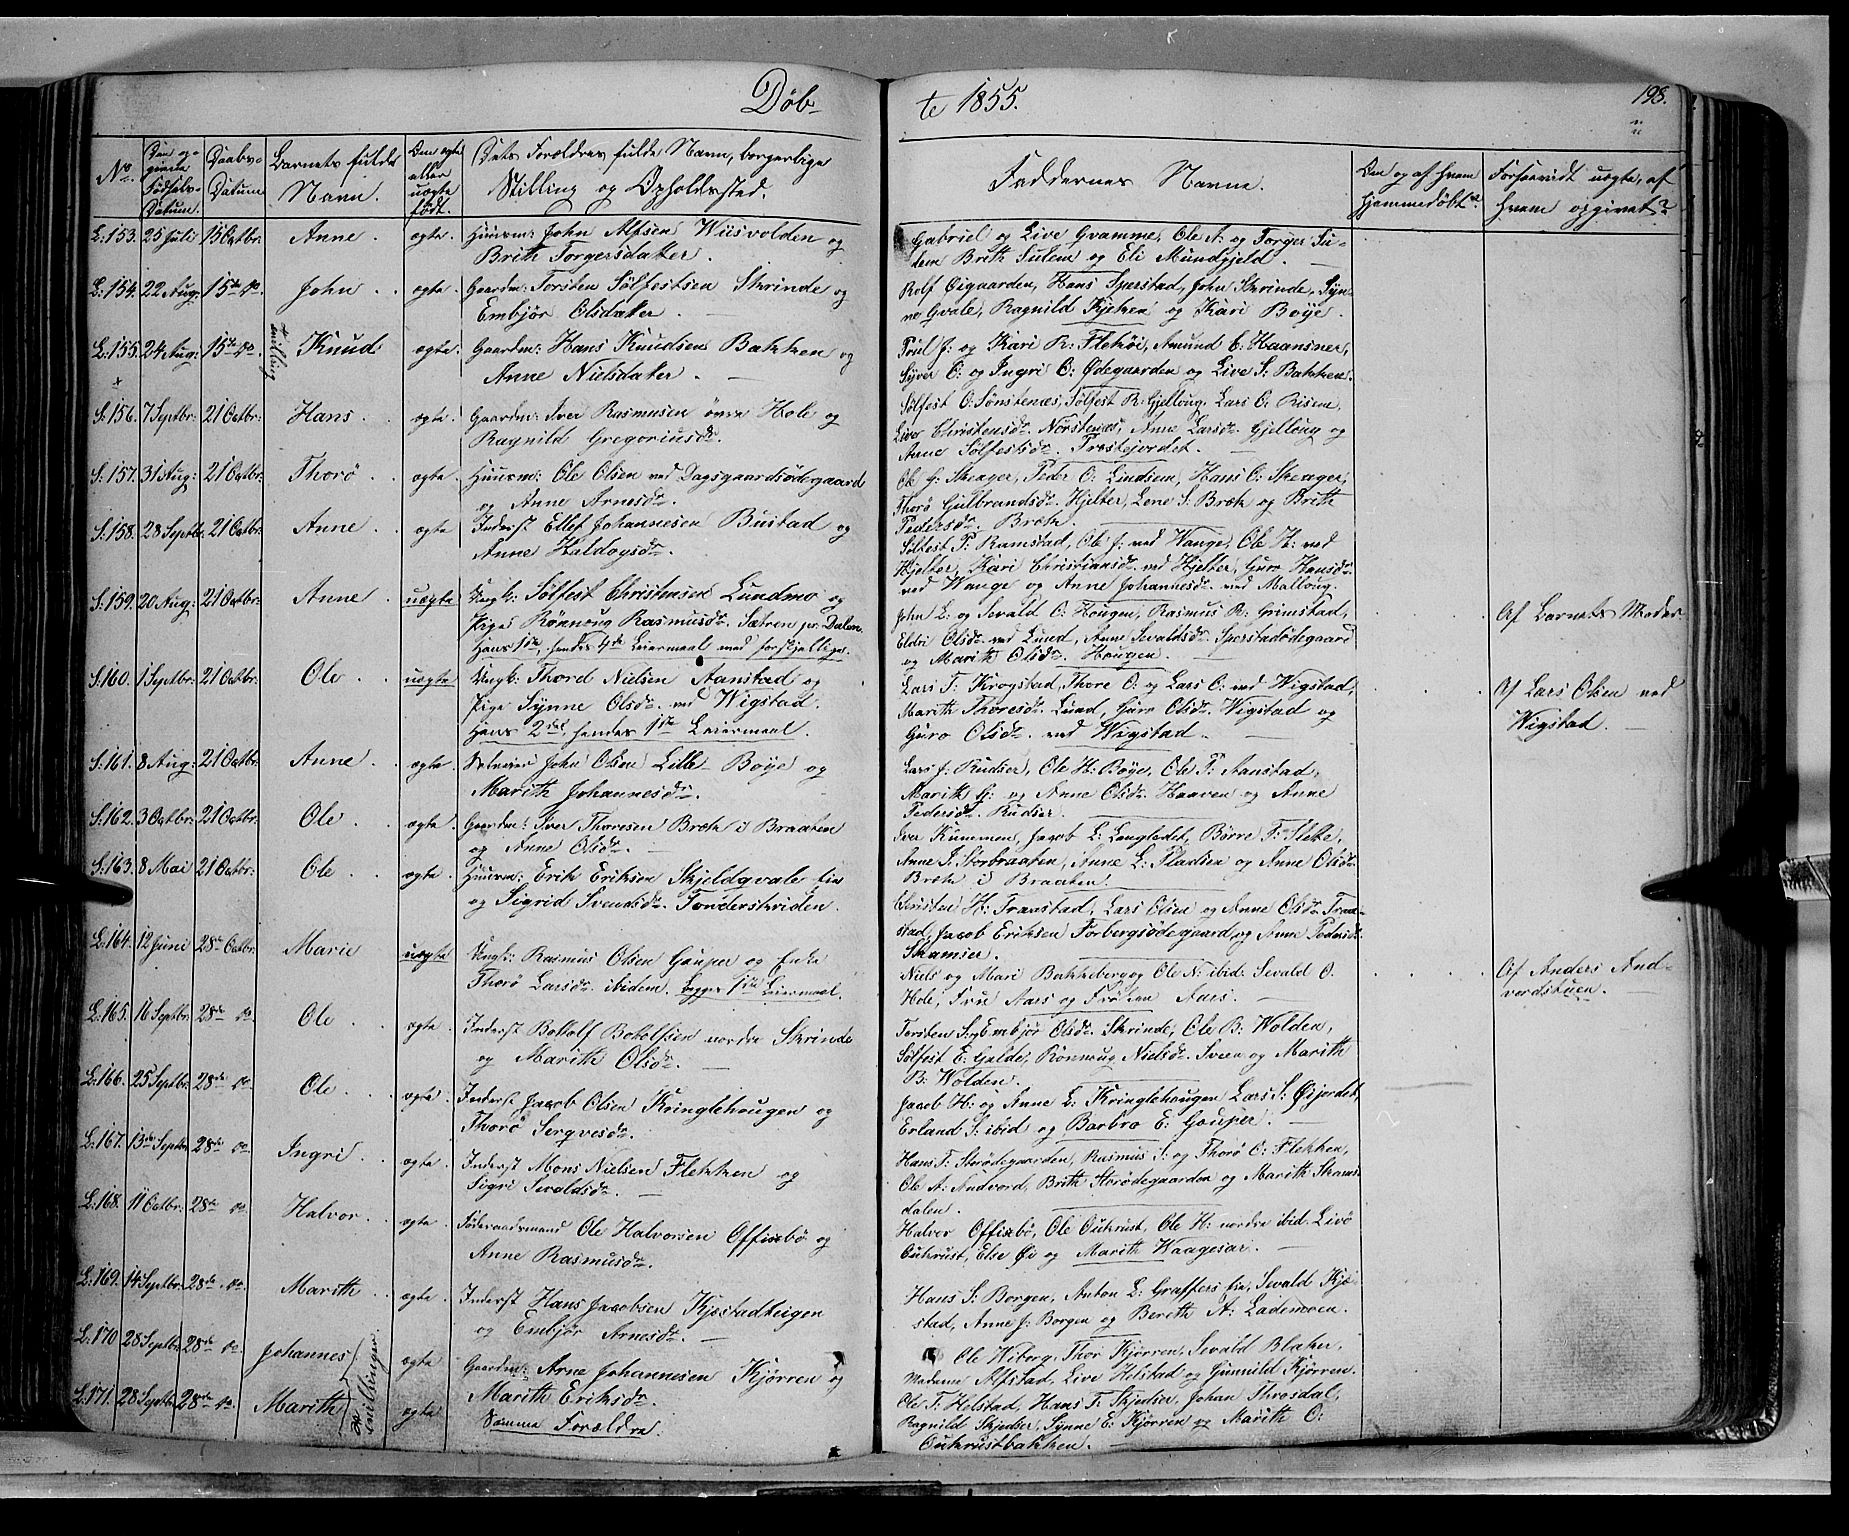 Døbte 1855.
198.
No. Den opgivne Fødsels-Datum. Daabs-Datum Barnets fulde Navn. Om ægte eller uægte født. Dets Forældres fulde Navn, borgerlige Stilling og Opholdssted. Faddernes Navne. Om og af hvem hjemmedøbt? Forsaavidt uægte, af hvem opgivet?
L:153. 25 Juli 15 Octbr: Anne. ægte. Huusm: John Alfsen Wiisvolden og
Brith Torgersdatter.
Gabriel og Live Gvamme, Ole A: og Torger Su-
lem Brith Sulem og Eli Mundgjeld.
L:154. 22 Aug: 15de do. John. ægte. Gaardm: Torsten Sølfestsen Skrinde og
Embjør Olsdatter.
Rolf Øigaarden, Hans Sperstad, John Skrinde, Syn-
nø Gvale, Ragnild Kjeken og Kari Bøye.
L:155. 24 Aug: 15de do. Tvilling Knud ægte. Gaardm: Hans Knudsen Bakken og
Anne Nielsdatter.
Poul J: og Kari R: Flekøi, Amund E: Haansner,
Syver O: og Ingri O: Ødegaarden og Live S: Bakken.
S:156. 7 Septbr: 21 Octbr: Hans. ægte. Gaardm: Iver Rasmusen øvre Hole og
Ragnild Gregoriusdr.
Sølfest O: Sønstenæs, Sølfest R: Gjelloug, Lars O: Risem,
Live Christensdr. Nørstenæs, Anne Larsdr. Gjelloug og
Anne Sølfestsdr. Trostejordet.
S:157. 31 Aug: 21 Octbr: Thorø ægte. Huusm: Ole Olsen ved Dagsgaardsødegaard
og Anne Arnesdr.
Ole G: Skeager, Peder O: Lindsem, Hans O: Skeager,
Thorø Gulbrandsdr. Hjelter, Lene S: Bræk og Brith
Pedersdr. Bræk.
S:158. 28 Septbr. 21 Octbr: Anne ægte Inderst Ellef Johannesen Bustad og
Anne Haldogsdr.
Sølfest P: Ramstad, Ole J: ved Wange, Ole H: ved
Hjelter, Kari Christiansdr. ved Hjelter, Guro Hansdr.
ved Wange og Anne Johannesdr. ved Malloug.
S:159. 20 Aug: 21 Octbr: Anne uægte Ungk: Sølfest Christensen Lundmo og
Pige Rønnoug Rasmusdr. Sætren pr. Dalen.
Hans 1ste, hendes 4de Leiermaal med forskjellige.
John E: og Sevald O: Hougen, Rasmus R: Grimstad,
Eldri Olsdr. ved Lund, Anne Sevaldsdr. Sperstadødegaard
og Marith Olsdr. Hougen.
Af Barnets Moder.
S:160. 1 Septbr: 21 Octbr: Ole. uægte Ungk: Thord Nielsen Aanstad og
Pige Synne Olsdr. ved Wigstad.
Hans 2det, hendes 1ste Leiermaal.
Lars T: Krogstad, Thore O: og Lars O: ved Wigstad,
Marith Thoresdr. Lund, Guro Olsdr. Wigstad og
Guro Olsdr. ved Wigstad.
Af Lars Olsen ved
Wigstad.
S:161. 8 Aug: 21 Octbr: Anne. ægte. Selveier John Olsen Lille-Bøye og
Marith Johannesdr.
Lars J: Rudsier, Ole H: Bøye, Ole P: Aanstad,
Marith G: og Anne Olsdr. Haaven og Anne
Pedersdr. Rudsier.
S:162. 3 Octbr: 21 Octbr: Ole. ægte. Gaardm: Iver Thoresen Bræk i Braaten
og Anne Olsdr.
Iver Kummen, Jacob L: Langledet, Birre T: Sleke,
Anne I: Storbraaten, Anne L: Fladsien og Anne Olsdr.
Bræk i Braaten.
S:163. 8 Mai 21 Octbr: Ole ægte. Huusm: Erik Eriksen Skjeldqvale eie
og Sigrid Svendsdr. Tonderskriden.
Christen H: Traastad, Lars Olsen og Anne Olsdr. Traa-
stad, Jacob Eriksen Forbergsødegaard og Anne Pedersdr.
Skamsier.
L:164. 12 Juni 28de Octbr: Marie uægte Ungk: Rasmus Olsen Gouper og Enke
Thorø Larsdr. ibidem. begges 1ste Leiermaal.
Niels og Mari Bakkeberg og Ole N: ibid: Sevald O.
Hole, Fru Aars og Frøken Aars.
Af Anders And-
vordstuen.
L:165. 16 Septbr: 28de do. Ole ægte. Inderst Botolf Botolfsen nordre Skrinde
og Marith Olsdr.
Torsten S. og Embjør Olsdr. Skrinde, Ole B: Wolden,
Sølfest E: Galde, Rønnoug Nielsdr. Sveen og Marith
B: Wolden.
L:166. 25 Septbr. 28de do. Ole ægte. Inderst Jacob Olsen Kringlehougen og
Thorø Sergvesdr.
Jacob H: og Anne L: Kringlehougen Lars S: Øijordet,
Erland S: ibid og Barbro E: Gouper.
L:167. 13de Septbr. 28de do. Ingri ægte Inderst Mons Nielsen Flekken og
Sigri Sevaldsdr.
Hans T: Storødegaarden, Rasmus S: og Thorø O: Flekken,
Ole A: Andvord, Brith Storødegaarden og Marith Skams-
dalen.
L:168. 11 Octbr: 28de do. Halvor. ægte. Føderaadsmand Ole Halvorsen Offisbø og
Anne Rasmusdr.
Halvor Offisbø, Ole Oukrust, Ole H: nordre ibid. Livø
Oukrust, Else Øi og Marith Waagesar.
L:169. 14 Septbr: 28de do. Marith ægte. Inderst Hans Jacobsen Kjæstadteigen
og Embjør Arnesdr.
Hans S: Borgen, Anton L: Graffers eie, Sevald Kjæ-
stad, Anne J: Borgen og Bereth A: Lademoen.
L:170 28 Septbr. 28de do. Johannes ægte Gaardm: Arne Johannesen Kjørren og
Marith Eriksdr.
Ole Wiborg, Thor Kjørren, Sevald Blaker,
Madame Alfstad, Live Helstad og Gunnild Kjørren.
L:171. 28 Septbr. 28de do. Marith ægte Samme Forældre.
Tvillinger.
Ole T: Helstad, Hans T: Skjedsier, Johan Throsdal,
Ragnild Skjedsier, Synne E: Kjørren og Marith O:
Oukrustbakken.